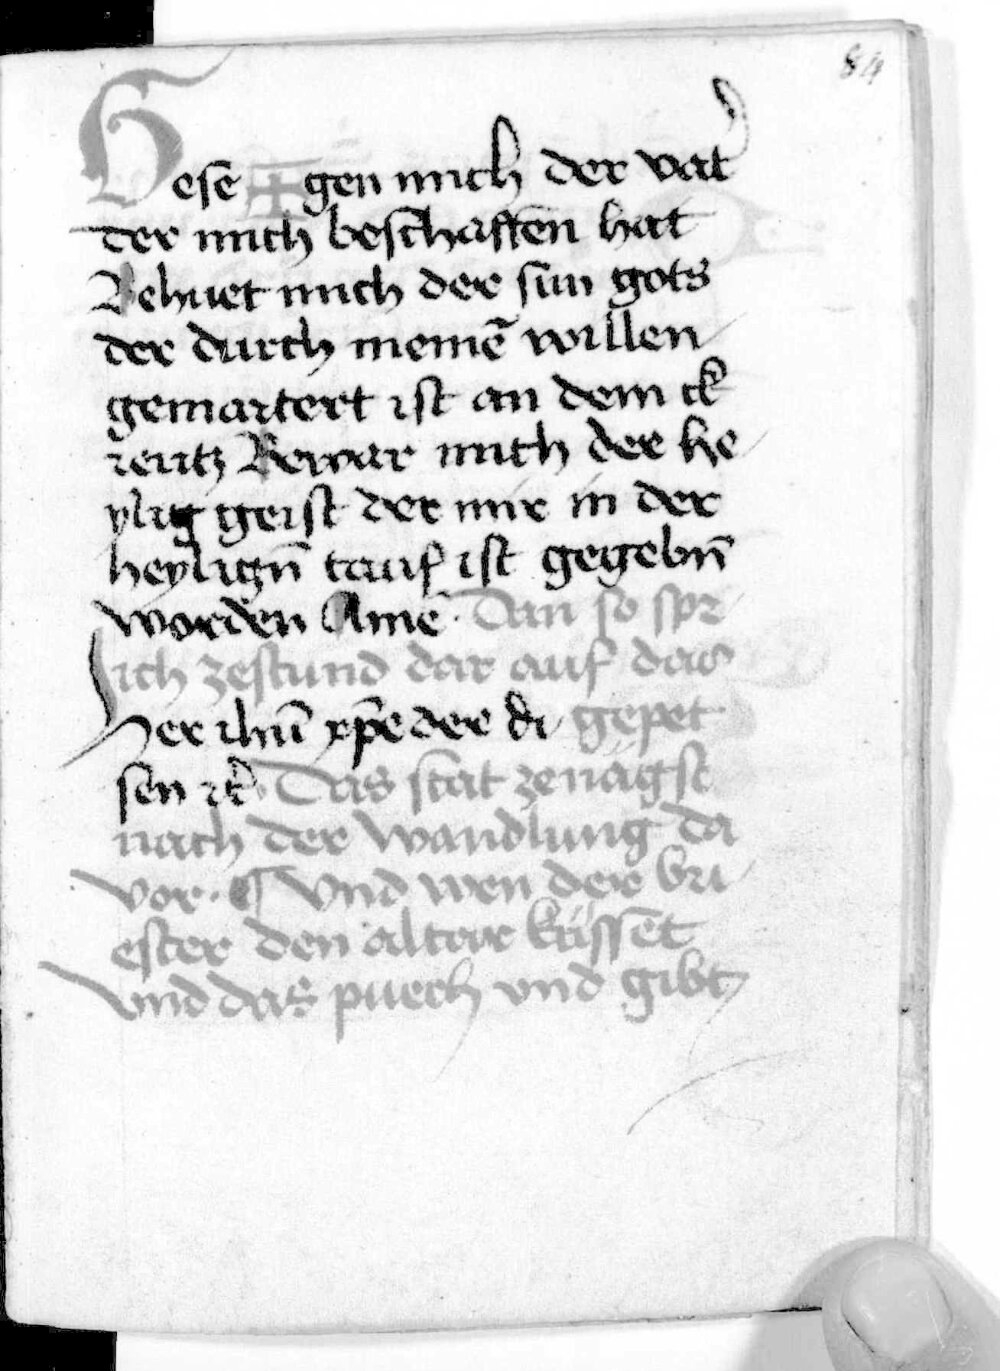 84
Gesē ✠ gen mich der vat
der mich beschaffen hat
Behuet mich der sun gots
der durch meinē willen
gemartert ist an dem ck
reutz Bewar mich der he
ylig geist der mir in der
heyligñ tauf ist gegebñ
worden Amē. Dan so spr
ich zestund dar auf das
Her ihū xp̄e der di gepet
sen ꝛc Das stat zenägst
nach der wandlung da
vor. ¶ Vnd wen der bri
ester den altar küsset
vnd das puech vnd gibt